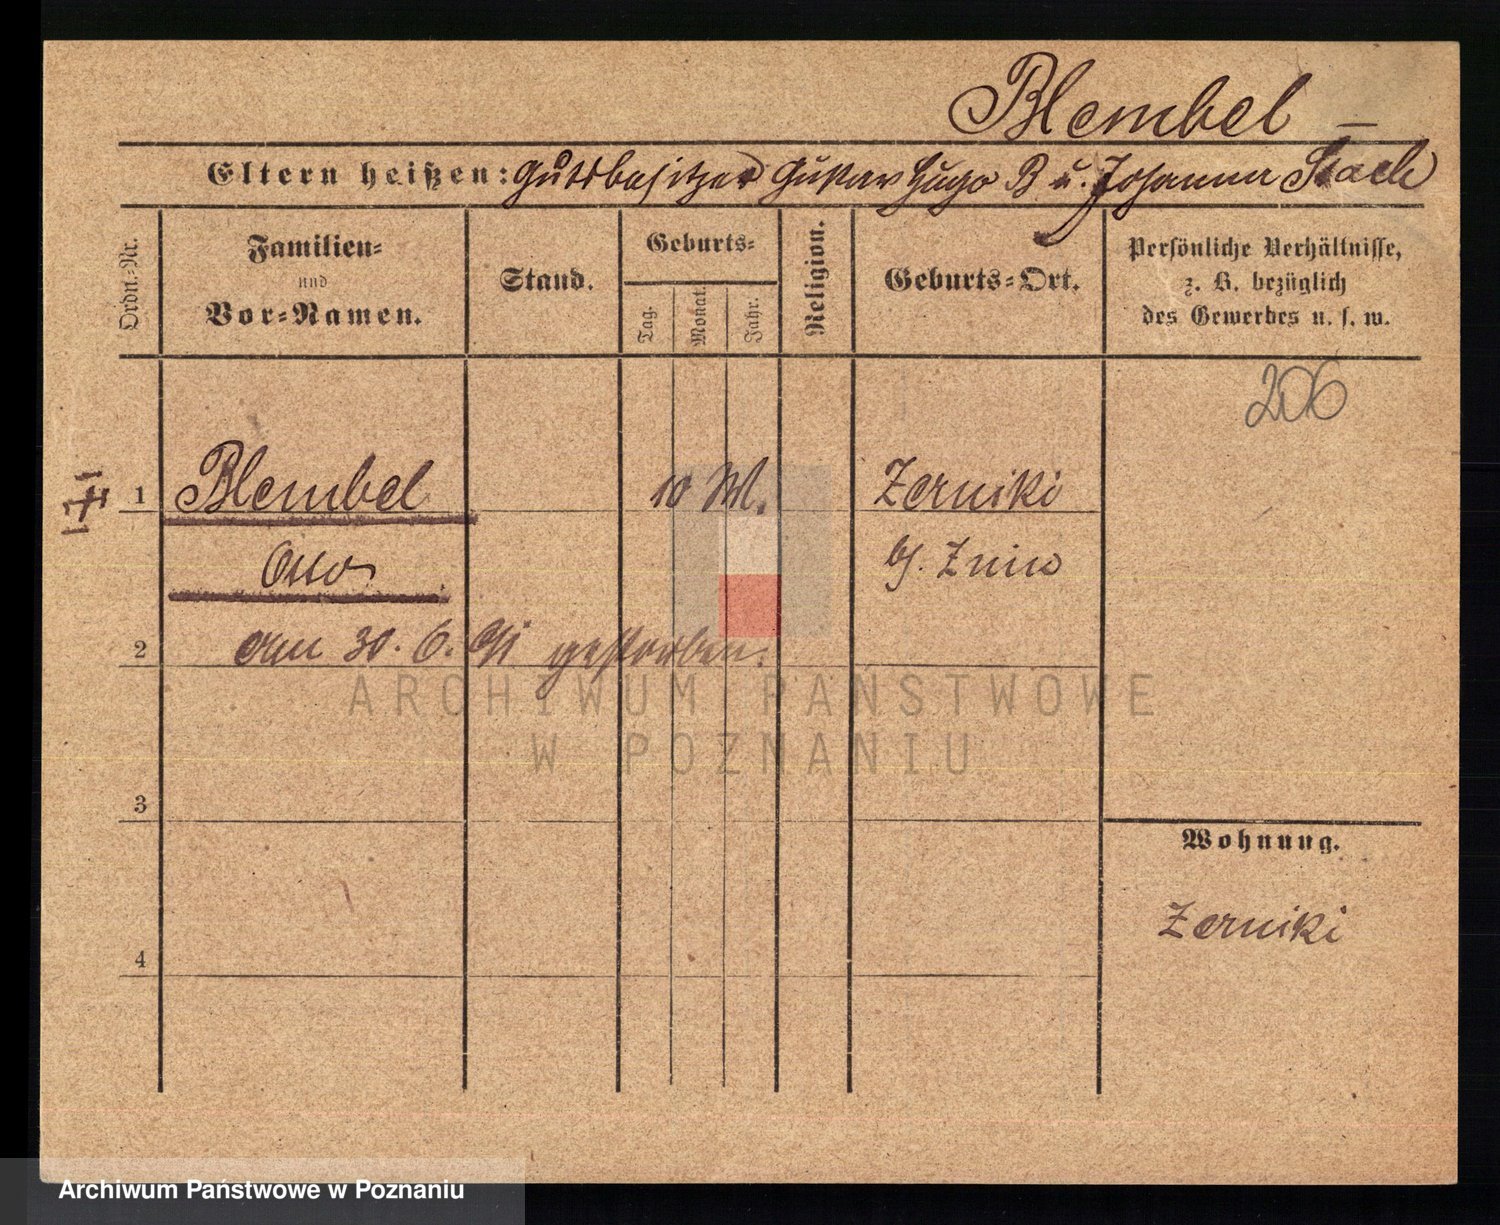 Blembel –
Eltern heißen: Gutsbesitzer Gustav Hugo B u. Johanna Stach
Ordn.-Nr.
Familien-
und
Vor-Namen.
Stand.
Geburts-
Tag.
Monat.
Jahr.
Religion.
Geburts-Ort.
Persönliche Verhältnisse,
z. B. bezüglich
des Gewerbes u. s. w.
206
1 Blembel 10 M. Zerniki
Otto b/. Znin
2 am 30. 6. 91 gestorben.
ARCHIWUM PAŃSTWOWE
W POZNANIU
3
Wohnung.
Zerniki
4
Archiwum Państwowe w Poznaniu